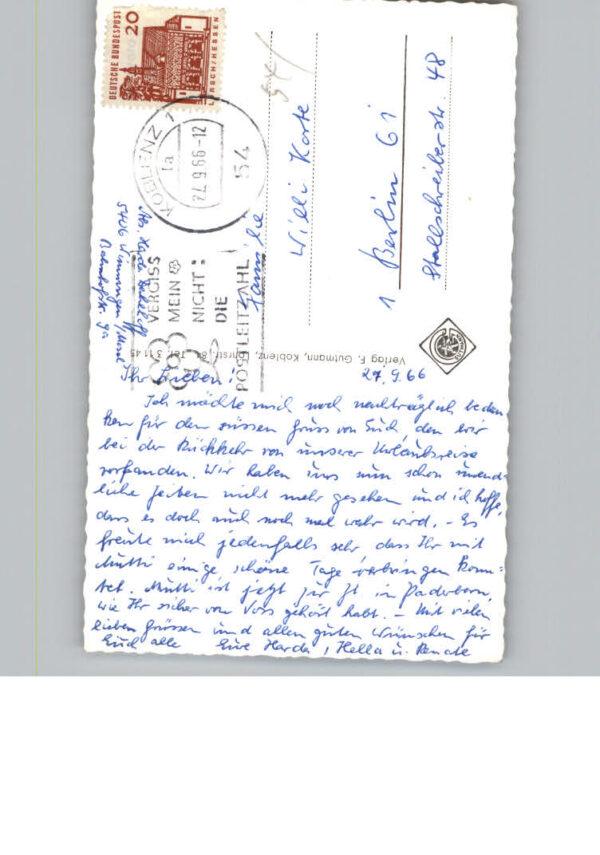 DEUTSCHE BUNDESPOST
20
LORSCH/HESSEN
KOBLENZ 1
1a
27.9.66-12
54
VERGISS
MEIN
NICHT:
DIE
POSTLEITZAHL
Abs.
5406 Winningen/Mosel
Bahnhofstr. 9a
Familie
Willi Korte
1 Berlin 61
Stallschreiberstr. 48
Verlag F. Gutmann, Koblenz, Tel. 31145
Ihr Lieben!
27.9.66
Ich möchte mich noch nachträglich bedan-
ken für den süssen Gruss von Euch, den wir
bei der Rückkehr von unserer Urlaubsreise
vorfanden. Wir haben uns nun schon unend-
liche Zeiten nicht mehr gesehen und ich hoffe,
dass es doch auch noch mal wahr wird. – Es
freute mich jedenfalls sehr, dass Ihr mit
Mutti einige schöne Tage verbringen konn-
tet. Mutti ist jetzt zur Zt in Paderborn,
wie Ihr sicher von gehört habt. – Mit vielen
lieben Grüssen und allen guten Wünschen für
Euch alle Eure Harda, Hella u. Renate